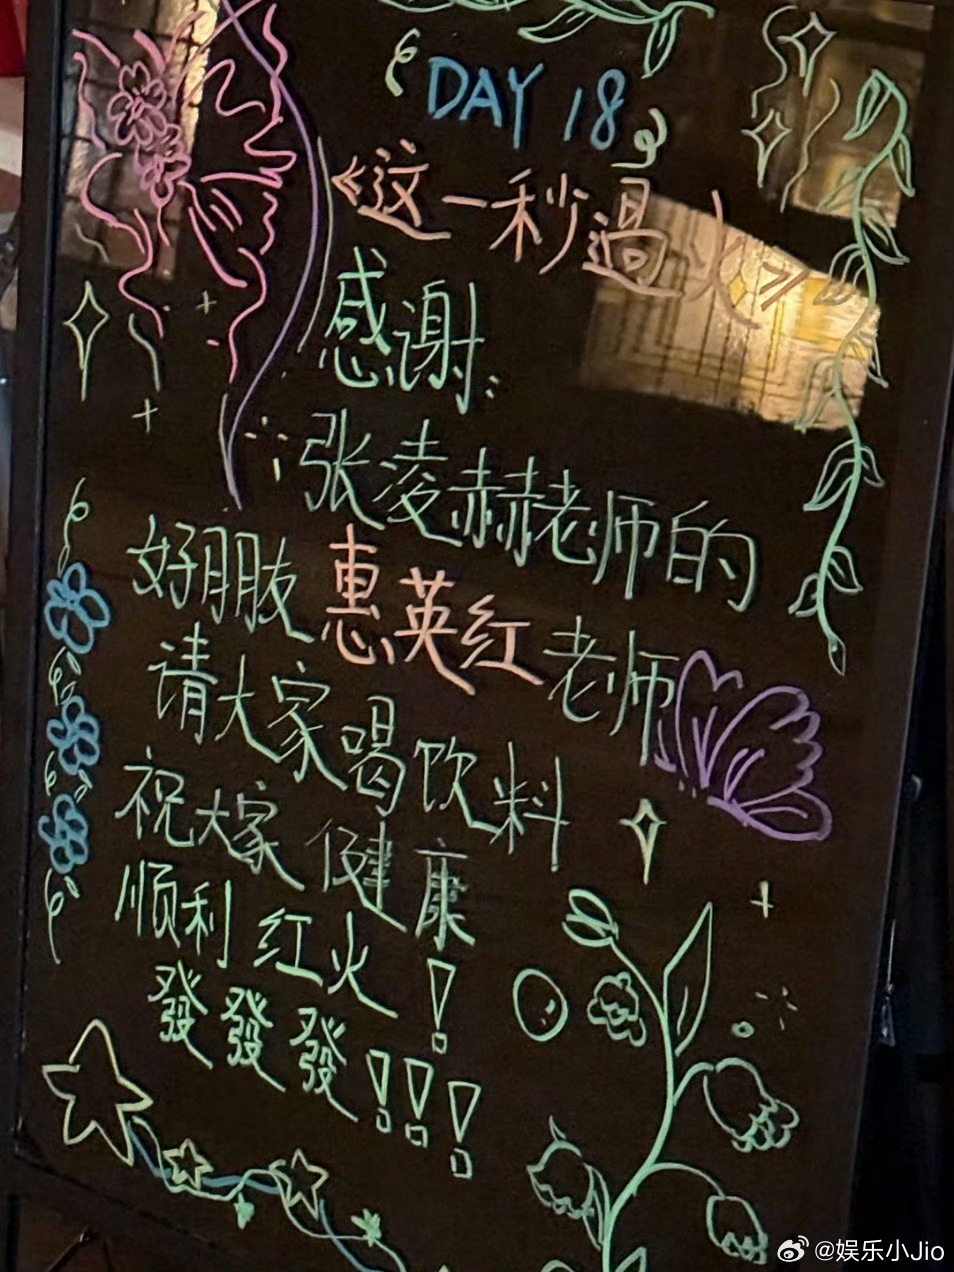 DAY 18
《这一秒過火》
感谢:
张凌赫老师的
好朋友惠英红老师
请大家喝饮料
祝大家健康
顺利红火!
發發發!!!
@娱乐小Jio